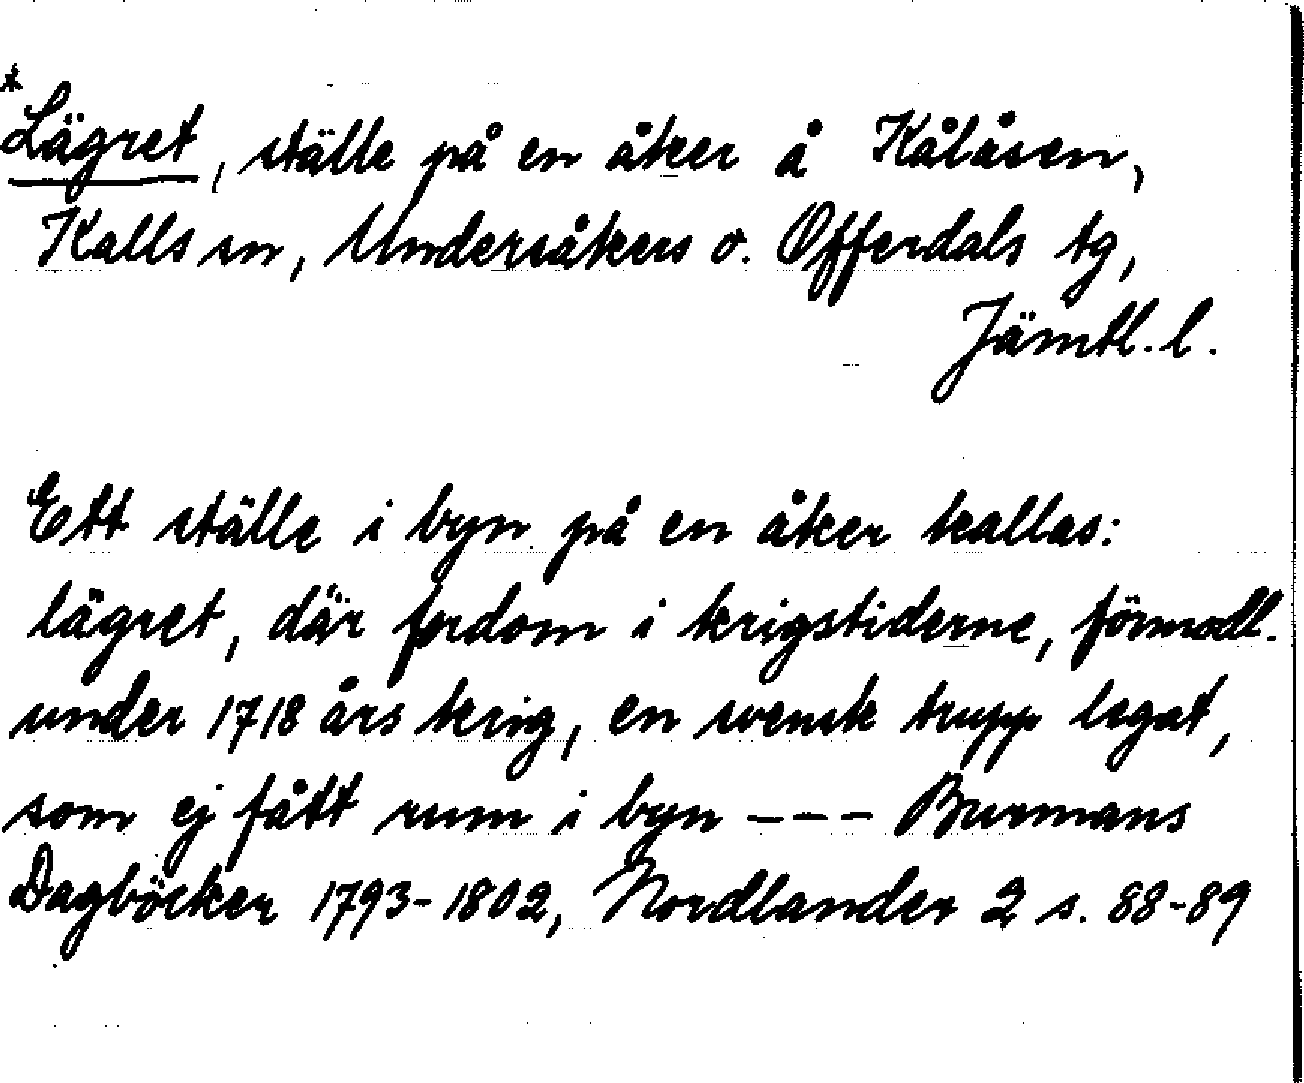 *Lägret, ställe på en åker å Kålåsen,
Kalls sn, Undersåkers o. Offerdals tg,
Jämtl. l.
Ett ställe i byn på en åker kallas:
lägret, där fordom i krigstiderne, förmodl.
under 1718 års krig, en svensk trupp legat,
som ej fått rum i byn --- Burmans
Dagböcker 1793-1802, Nordlander 2 s. 88-89